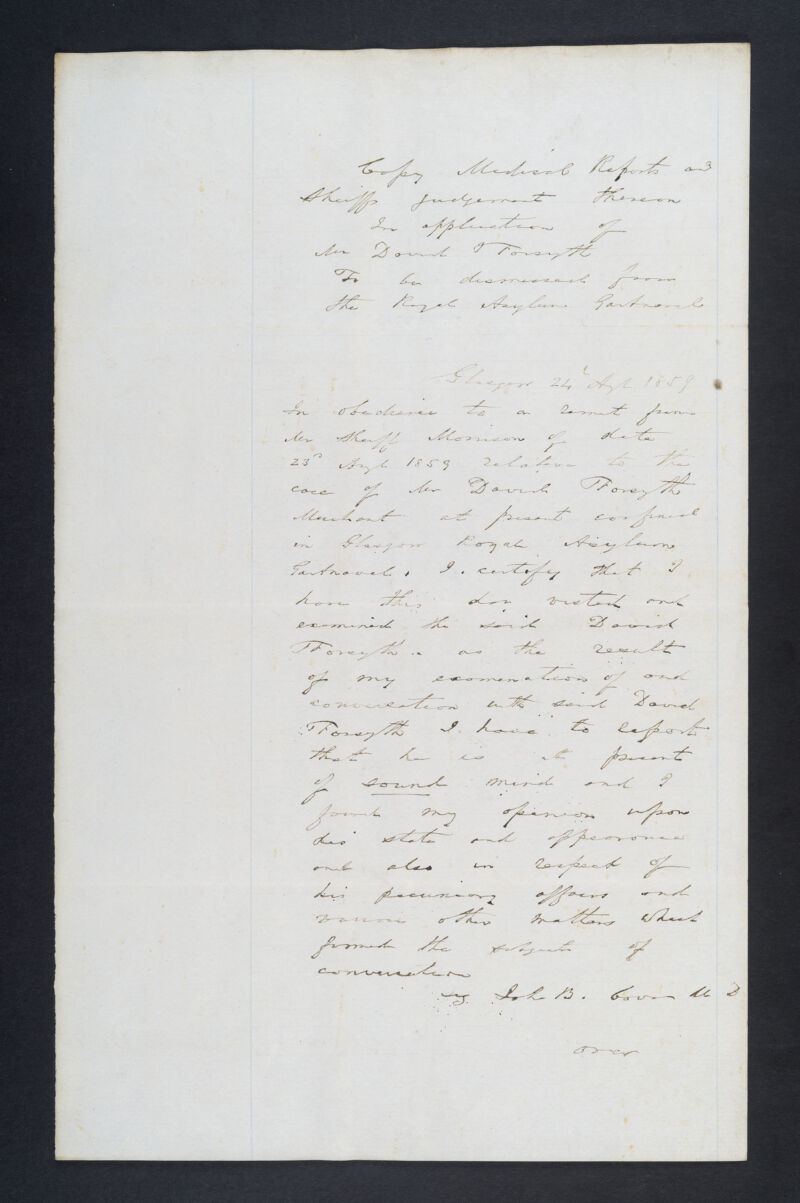 Copy Medical Reports and
Sheriffs judgement thereon
In application of
Mr David Forsyth
To be dismissed from
the Royal Asylum Gartnavel
Glasgow 24 1859
In obedience to a remit from
Mr Sheriff Morrison of date
23d 1859 relative to the
case of Mr David Forsyth
Merchant at present confined
in Glasgow Royal Asylum
Gartnavel. I certify that I
have this day visited and
examined the said David
Forsyth. as the result
of my examination of and
conversation with said David
Forsyth I have to report
that he is at present
of sound mind and I
found my opinion upon
his state and appearance
and also in respect of
his pecuniary affairs and
various other matters which
formed the subjects of
conversation
John B. Cowan M D
over